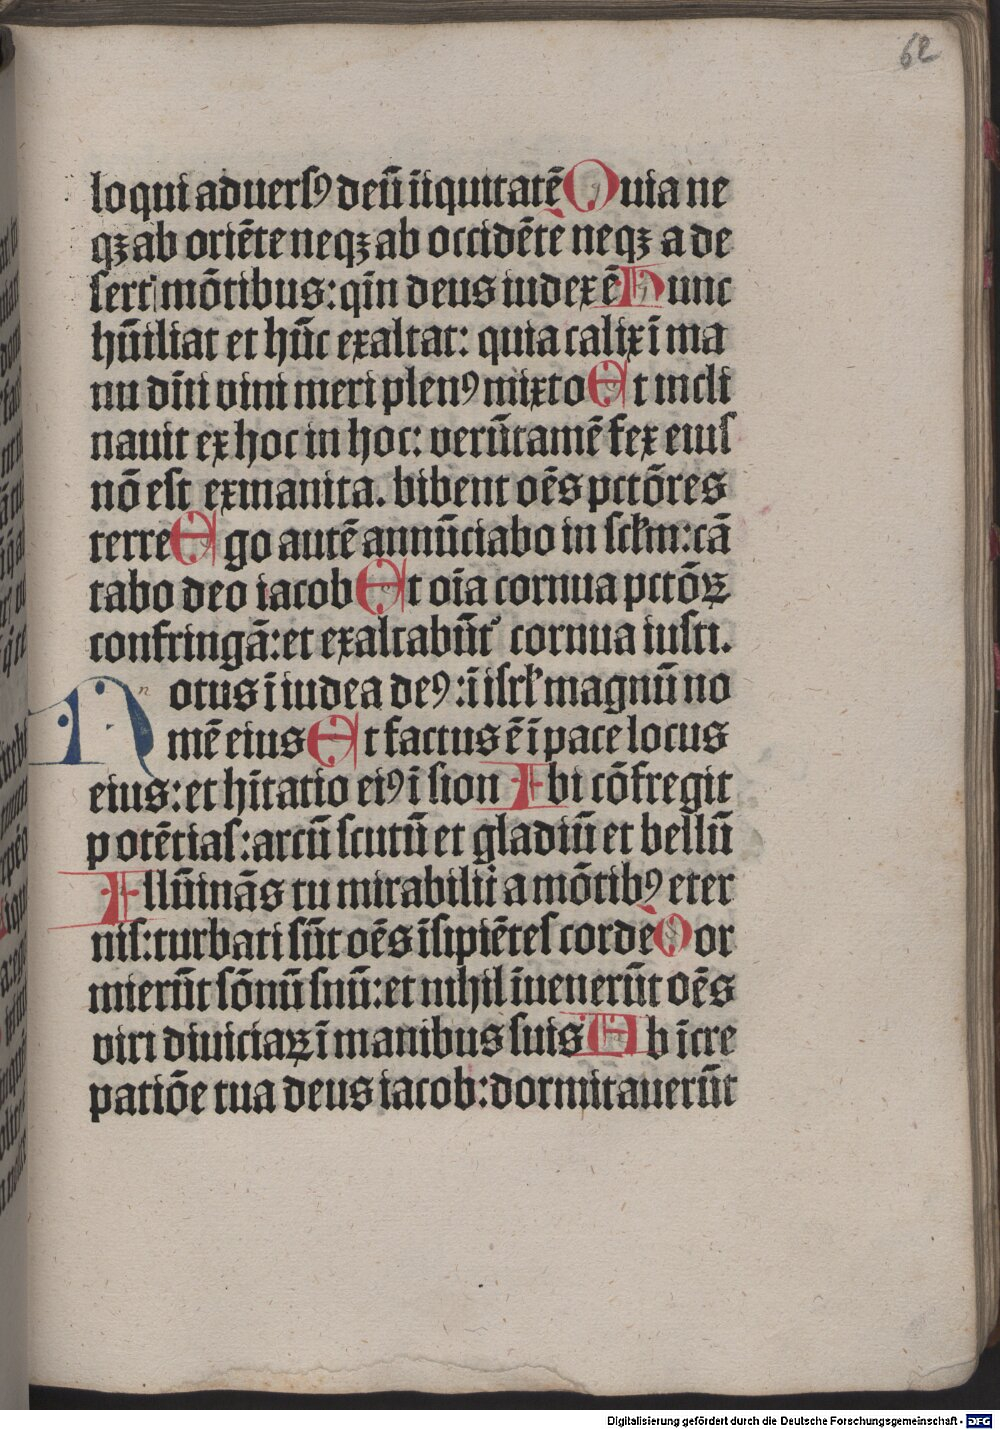 62
loqui aduersꝰ deū iīquitatē Quia ne
qꝫ ab oriēte neqꝫ ab occidēte neqꝫ a de
sert mōtibus: qm̄ deus iudex ē Hunc
hūiliat et hūc exaltat: quia calix ī ma
nu dn̄i vini meri plenꝰ mixto Et incli
nauit ex hoc in hoc: verūtamē fex eius
nō est exinanita. bibent oēs pctōres
terre Ego autē annūciabo in sclm: cā
tabo deo iacob Et oīa cornua pctōꝝ
confringā: et exaltabūt᷑ cornua iusti.
Notus ī iudea deꝰ: ī isrl magnū no
mē eius Et factus ē ī pace locus
eius: et hītatio eiꝰ ī sion Ibi cōfregit
potētias: arcū scutū et gladiū et bellū
Illūinās tu mirabilit᷑ a mōtibꝰ eter
nis: turbati sūt oēs īsipiētes corde Dor
mierūt sōnū suū: et nihil īuenerūt oēs
viri diuiciaꝝ ī manibus suis Ab īcre
patiōe tua deus iacob: dormitauerūt
Digitalisierung gefördert durch die Deutsche Forschungsgemeinschaft - DFG